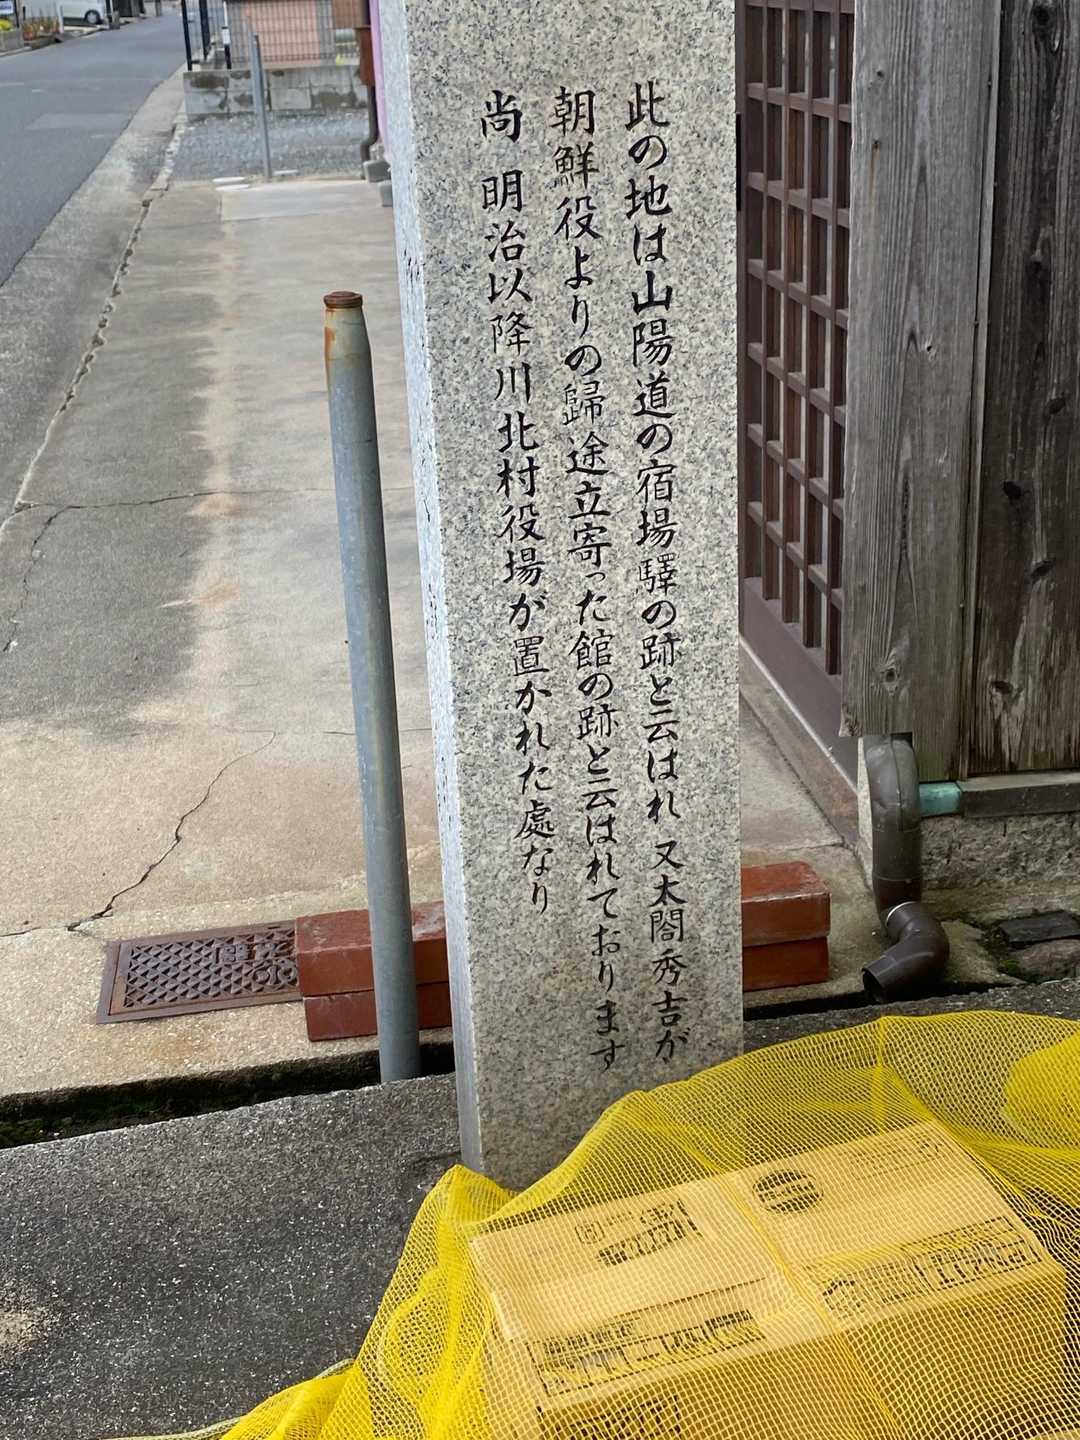 此の地は山陽道の宿場驛の跡と云はれ 又太閤秀吉が
朝鮮役よりの歸途立寄った館の跡と云はれております
尚 明治以降川北村役場が置かれた處なり